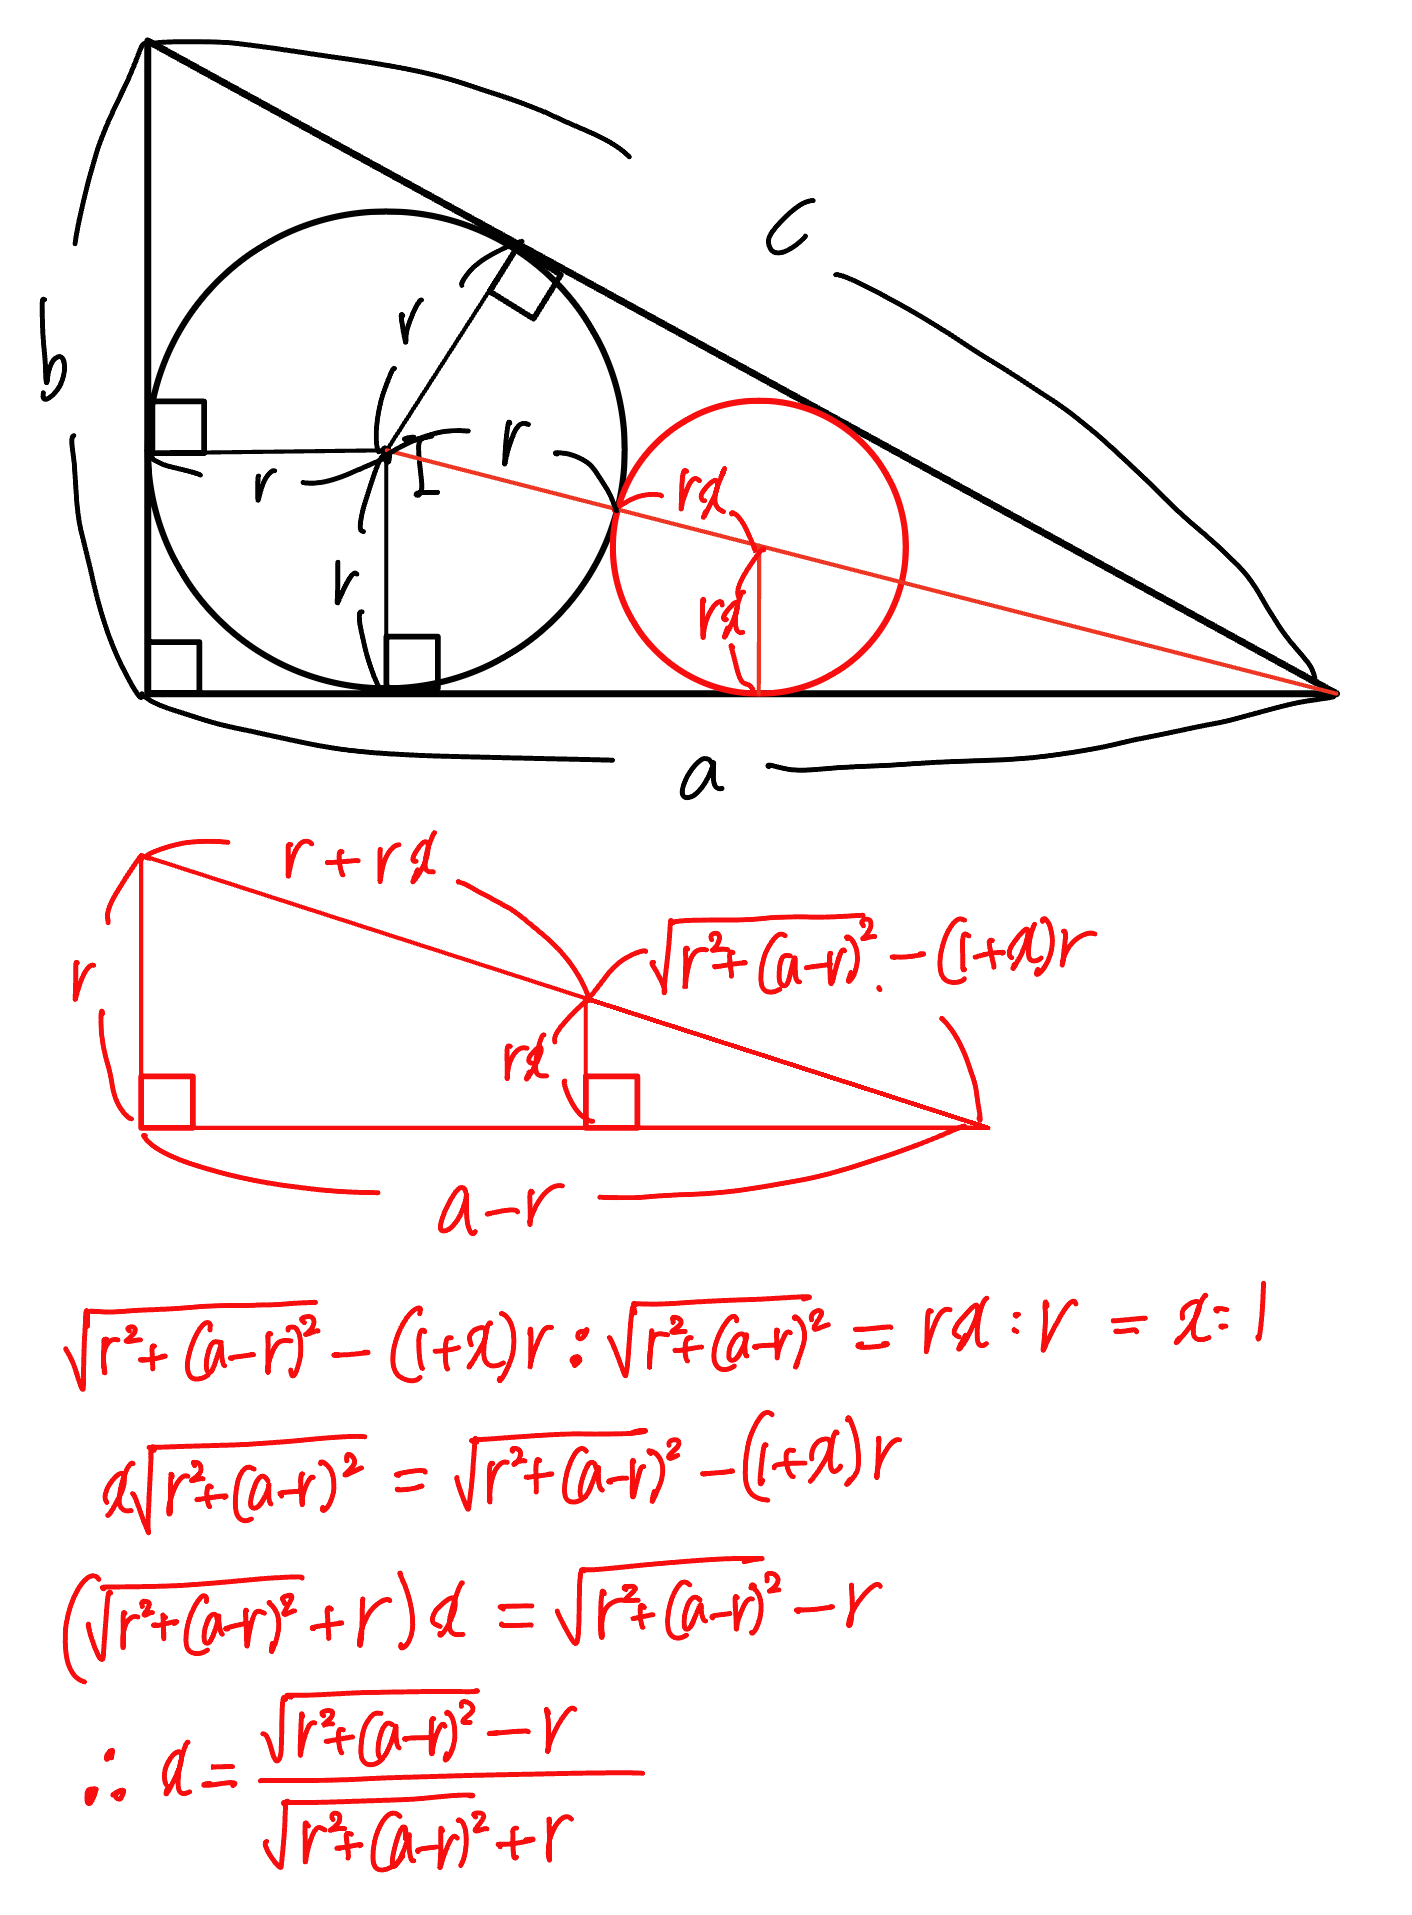 c
b
r
r
I
r
r
rx
rx
a
r + rx
√(r²+(a-r)²) - (1+x)r
r
rx
a-r
√(r²+(a-r)²) - (1+x)r : √(r²+(a-r)²) = rx : r = x : 1
x√(r²+(a-r)²) = √(r²+(a-r)²) - (1+x)r
(√(r²+(a-r)²) + r)x = √(r²+(a-r)²) - r
∴ x = (√(r²+(a-r)²) - r) / (√(r²+(a-r)²) + r)